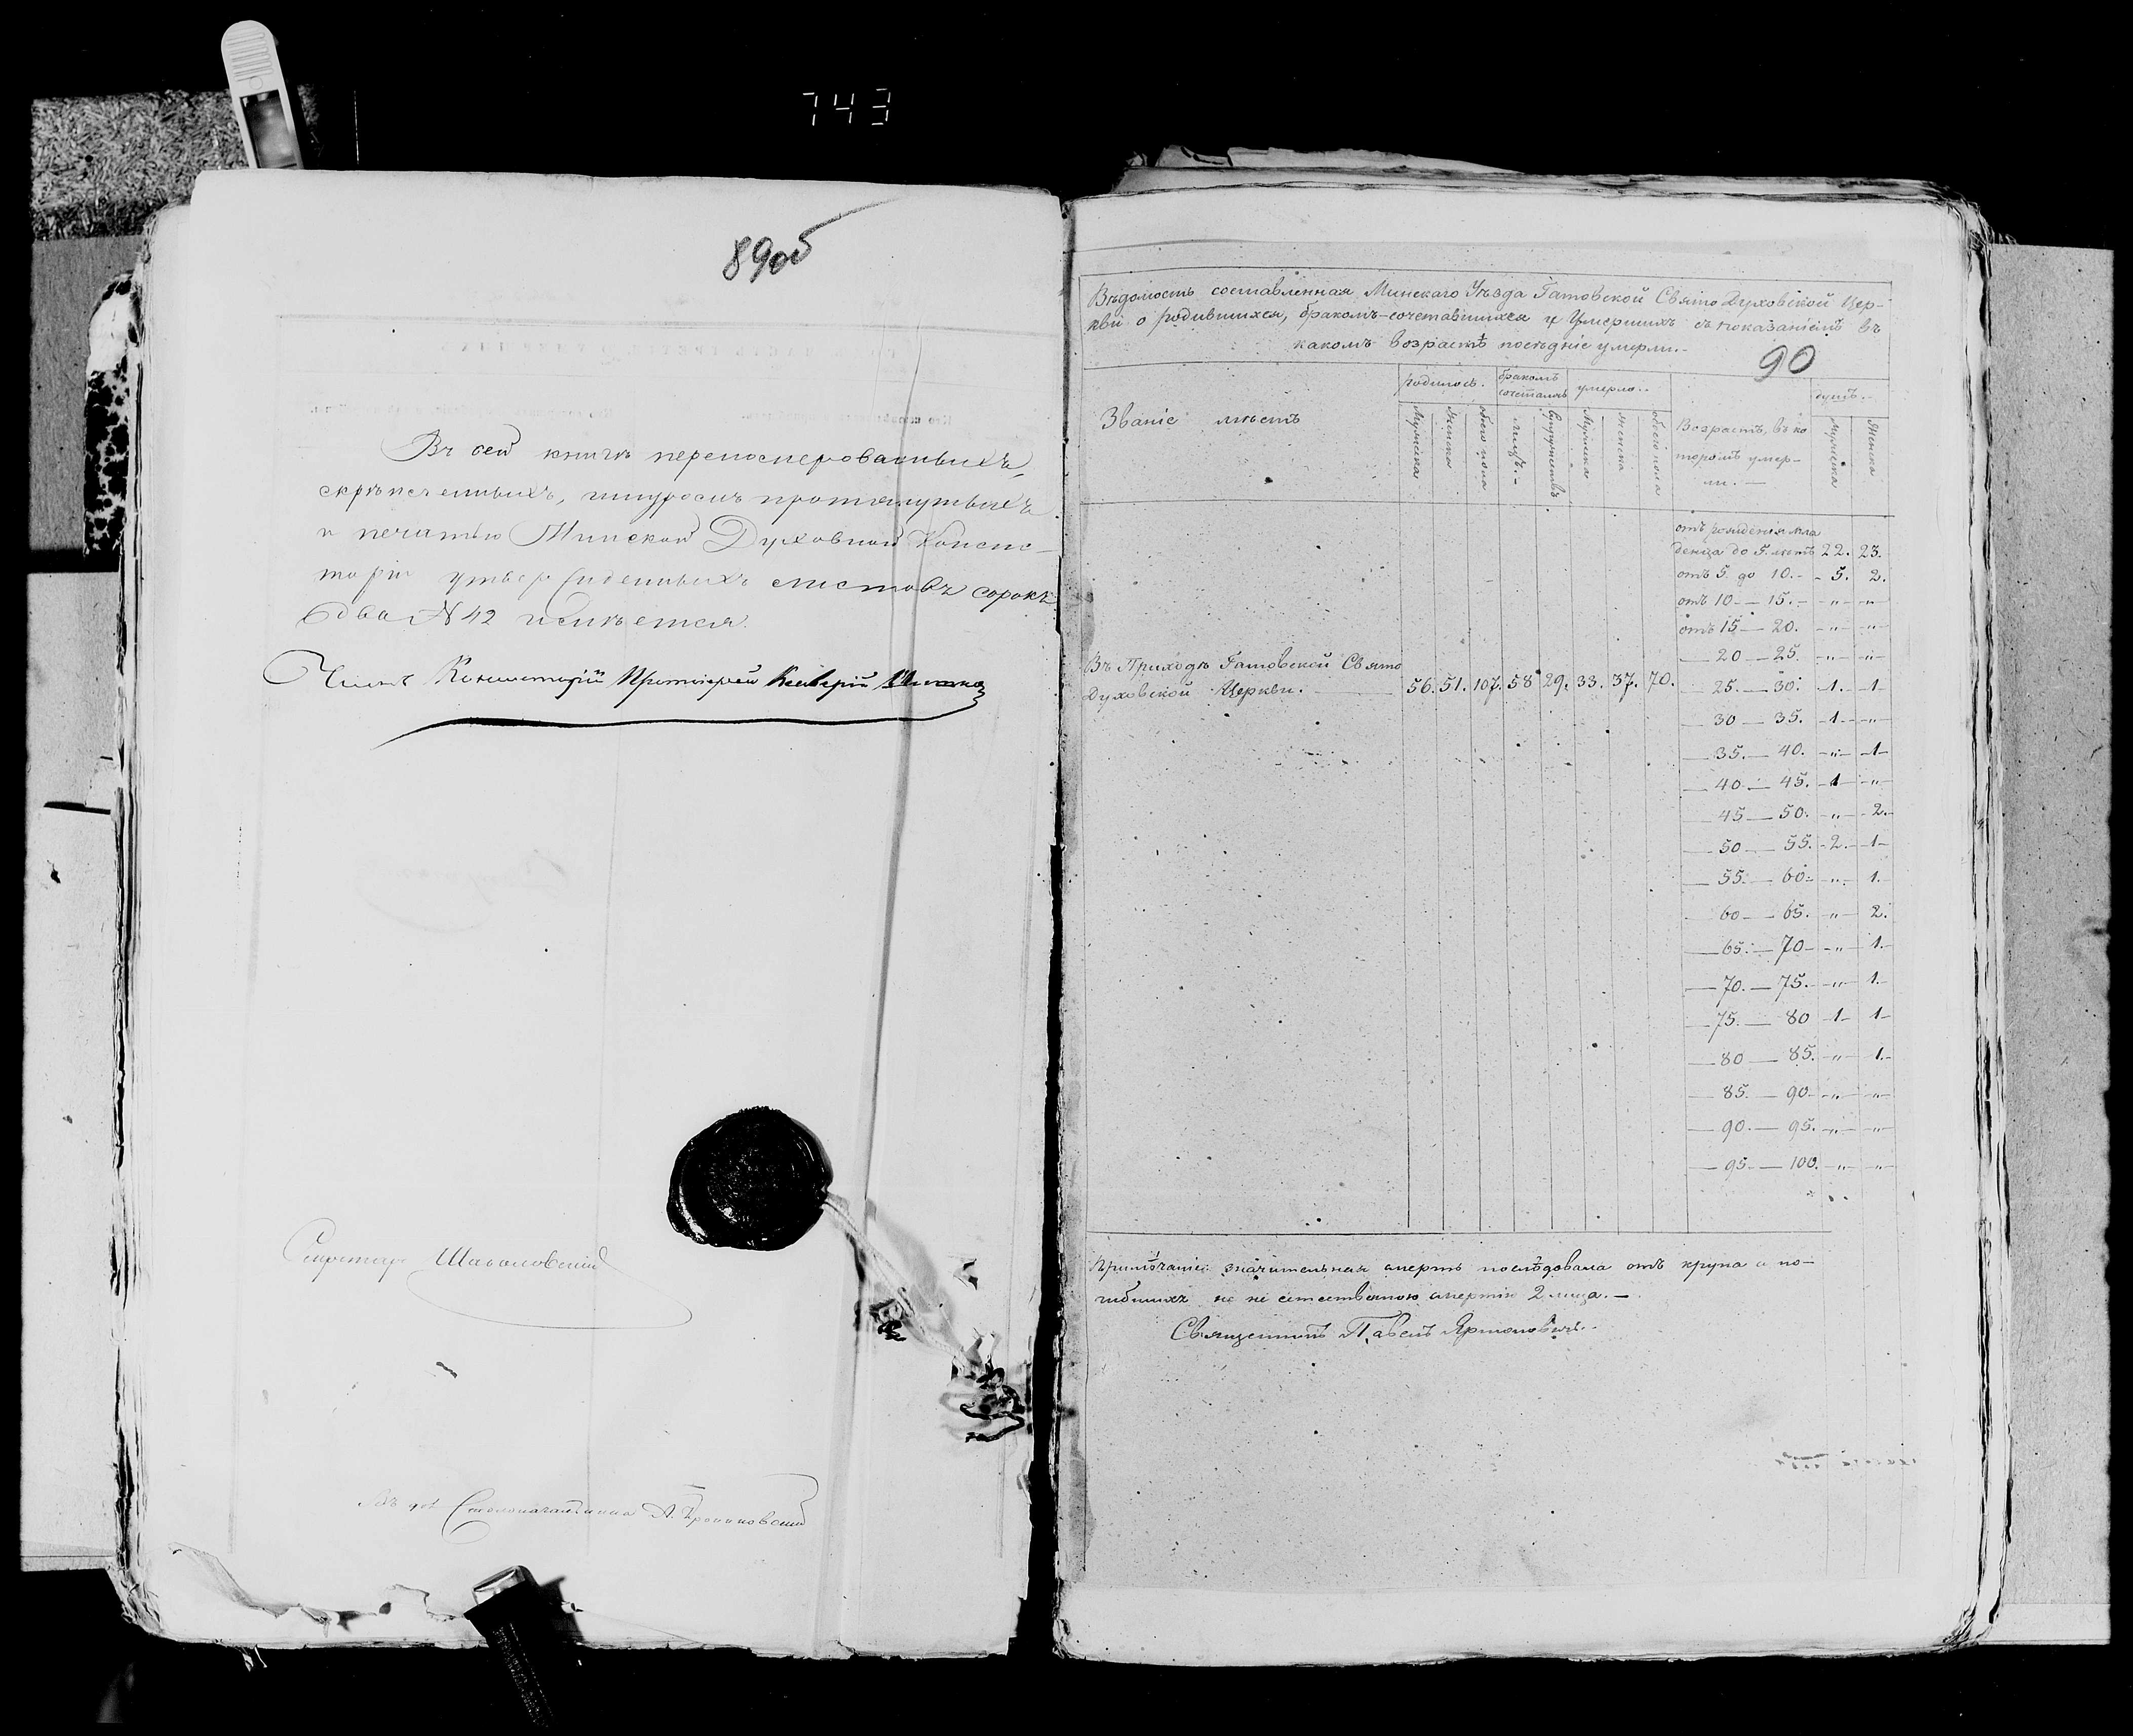 743
89об
Въ сей книгѣ перенумерованныхъ,
скрѣпленныхъ, шнуромъ протянутыхъ
и печатью Минской Духовной Консис-
торіи утвержденныхъ листовъ сорокъ
два № 42 имѣется.
Членъ Консисторіи Протоіерей
Секретарь
Столоначальника А.
Вѣдомость составленная Минскаго Уѣзда Гатовской Свято Духовской Цер-
кви о родившихся, бракомъ-сочетавшихся и Умершихъ съ показаніемъ въ
какомъ возрастѣ послѣдніе умерли.-
90
Званіе мѣстъ
родилось. бракомъ сочеталось умерло. душъ.-
Мужеска Женска обоего пола лицъ.- Супружествъ Мужска Женска обоего пола
Возрастъ, въ ко
торомъ умер-
ли.—
мужеска Женска
отъ рожденія мла
денца до 5. лѣтъ 22. 23.
отъ 5. до 10.- - 5. 2.
отъ 10 — 15.- -„- -„-
отъ 15 — 20. -„- -„-
— 20 — 25. -„- -„-
Въ Приходѣ Гатовской Свято
Духовской Церкви. 56. 51. 107. 58 29. 33. 37. 70.
— 25. — 30. -1.- -1-
— 30 — 35. -1- -„-
— 35. — 40. -„- -1-
— 40 — 45. -1- -„-
— 45 — 50. -„- -2.-
— 50 — 55. -2.- -1-
— 55. — 60. -„- 1.-
— 60 — 65. -„- 2.
— 65. — 70 -„- 1.-
— 70. — 75. -„- 1.-
— 75. — 80 -1- 1-
— 80 — 85. -„- 1.-
— 85. — 90 -„- -„-
— 90. — 95. -„- -„-
— 95 — 100. -„- -„-
Примѣчаніе: значительная смерть послѣдовала отъ крупа и по-
гибшихъ не естественною смертію 2 лица.—
Священникъ Павелъ